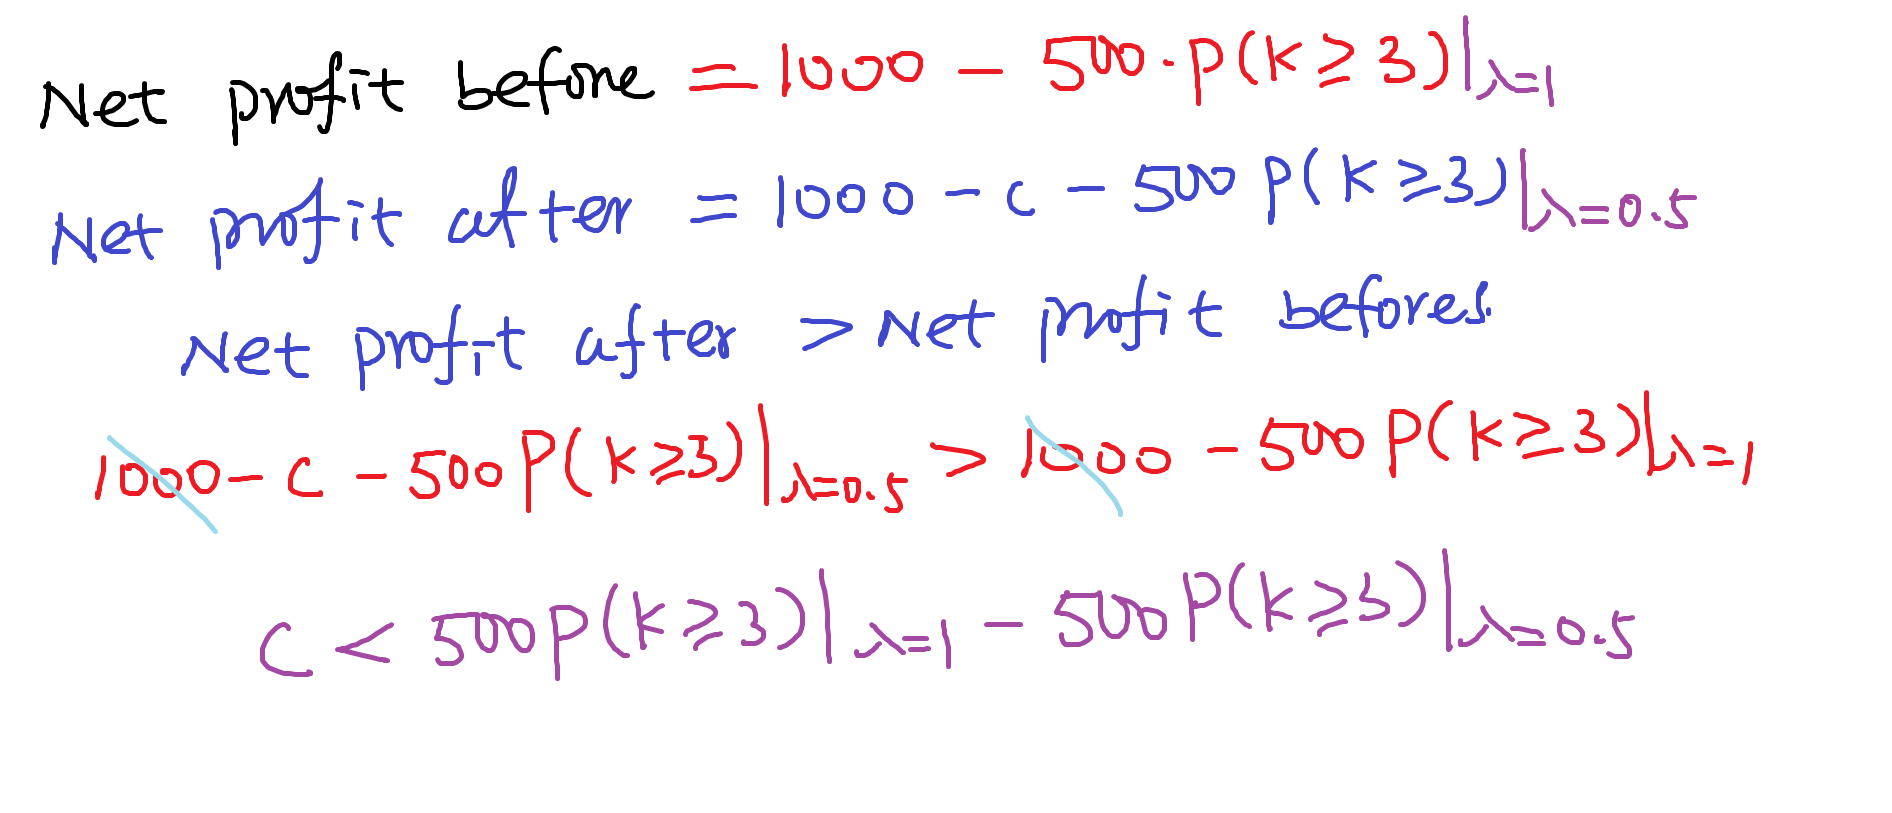 Net profit before = 1000 - 500 · P(K ≥ 3)|λ=1
Net profit after = 1000 - C - 500 P(K ≥ 3)|λ=0.5
Net profit after > Net profit befores.
1000 - C - 500 P(K ≥ 3)|λ=0.5 > 1000 - 500 P(K ≥ 3)|λ=1
C < 500 P(K ≥ 3)|λ=1 - 500 P(K ≥ 3)|λ=0.5